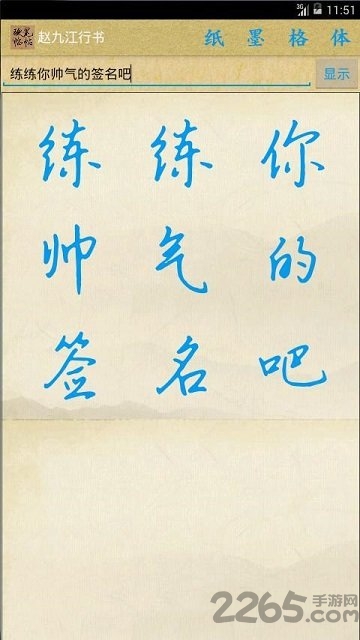 3G 11:51
硬笔
临帖
赵九江行书 纸 墨 格 体
练练你帅气的签名吧 显示
练 练 你
帅 气 的
签 名 吧
2265.com 手游网